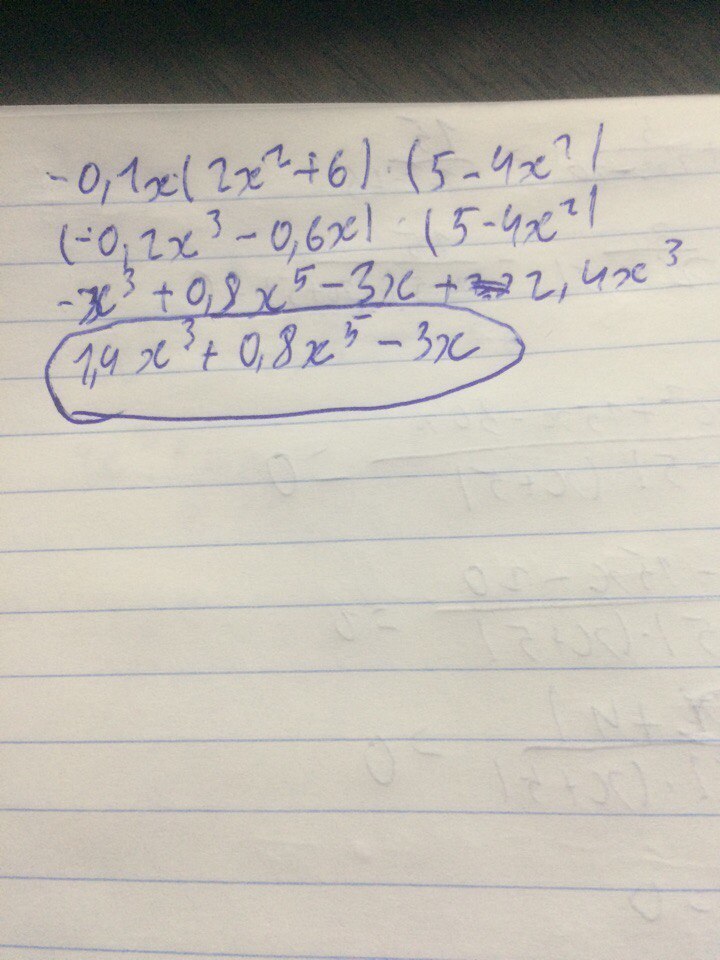 -0,1x·(2x²+6)·(5-4x²)
(-0,2x³-0,6x)·(5-4x²)
-x³+0,8x⁵-3x+2,4x³
1,4x³+0,8x⁵-3x